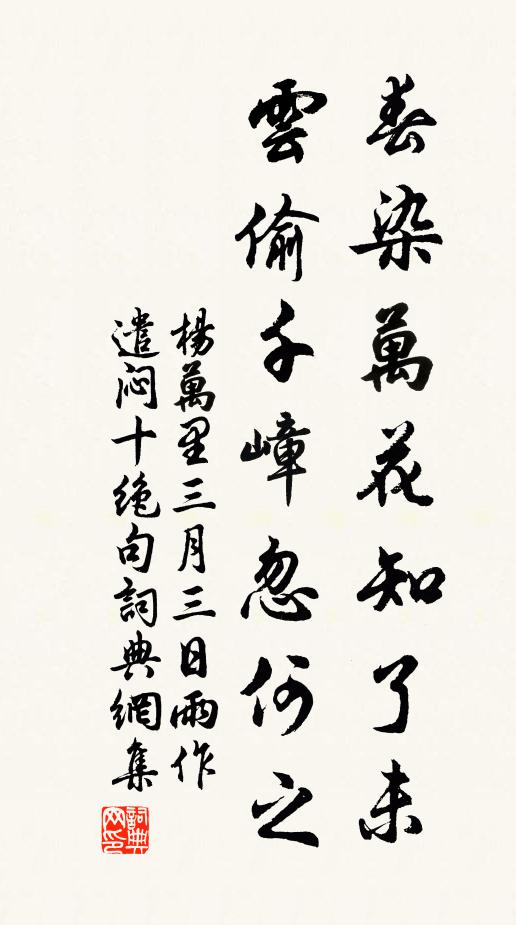 春染萬花知了未
雲偷千嶂忽何之
楊萬里三月三日雨作
遣闷十绝句詞典網集
詞典网印